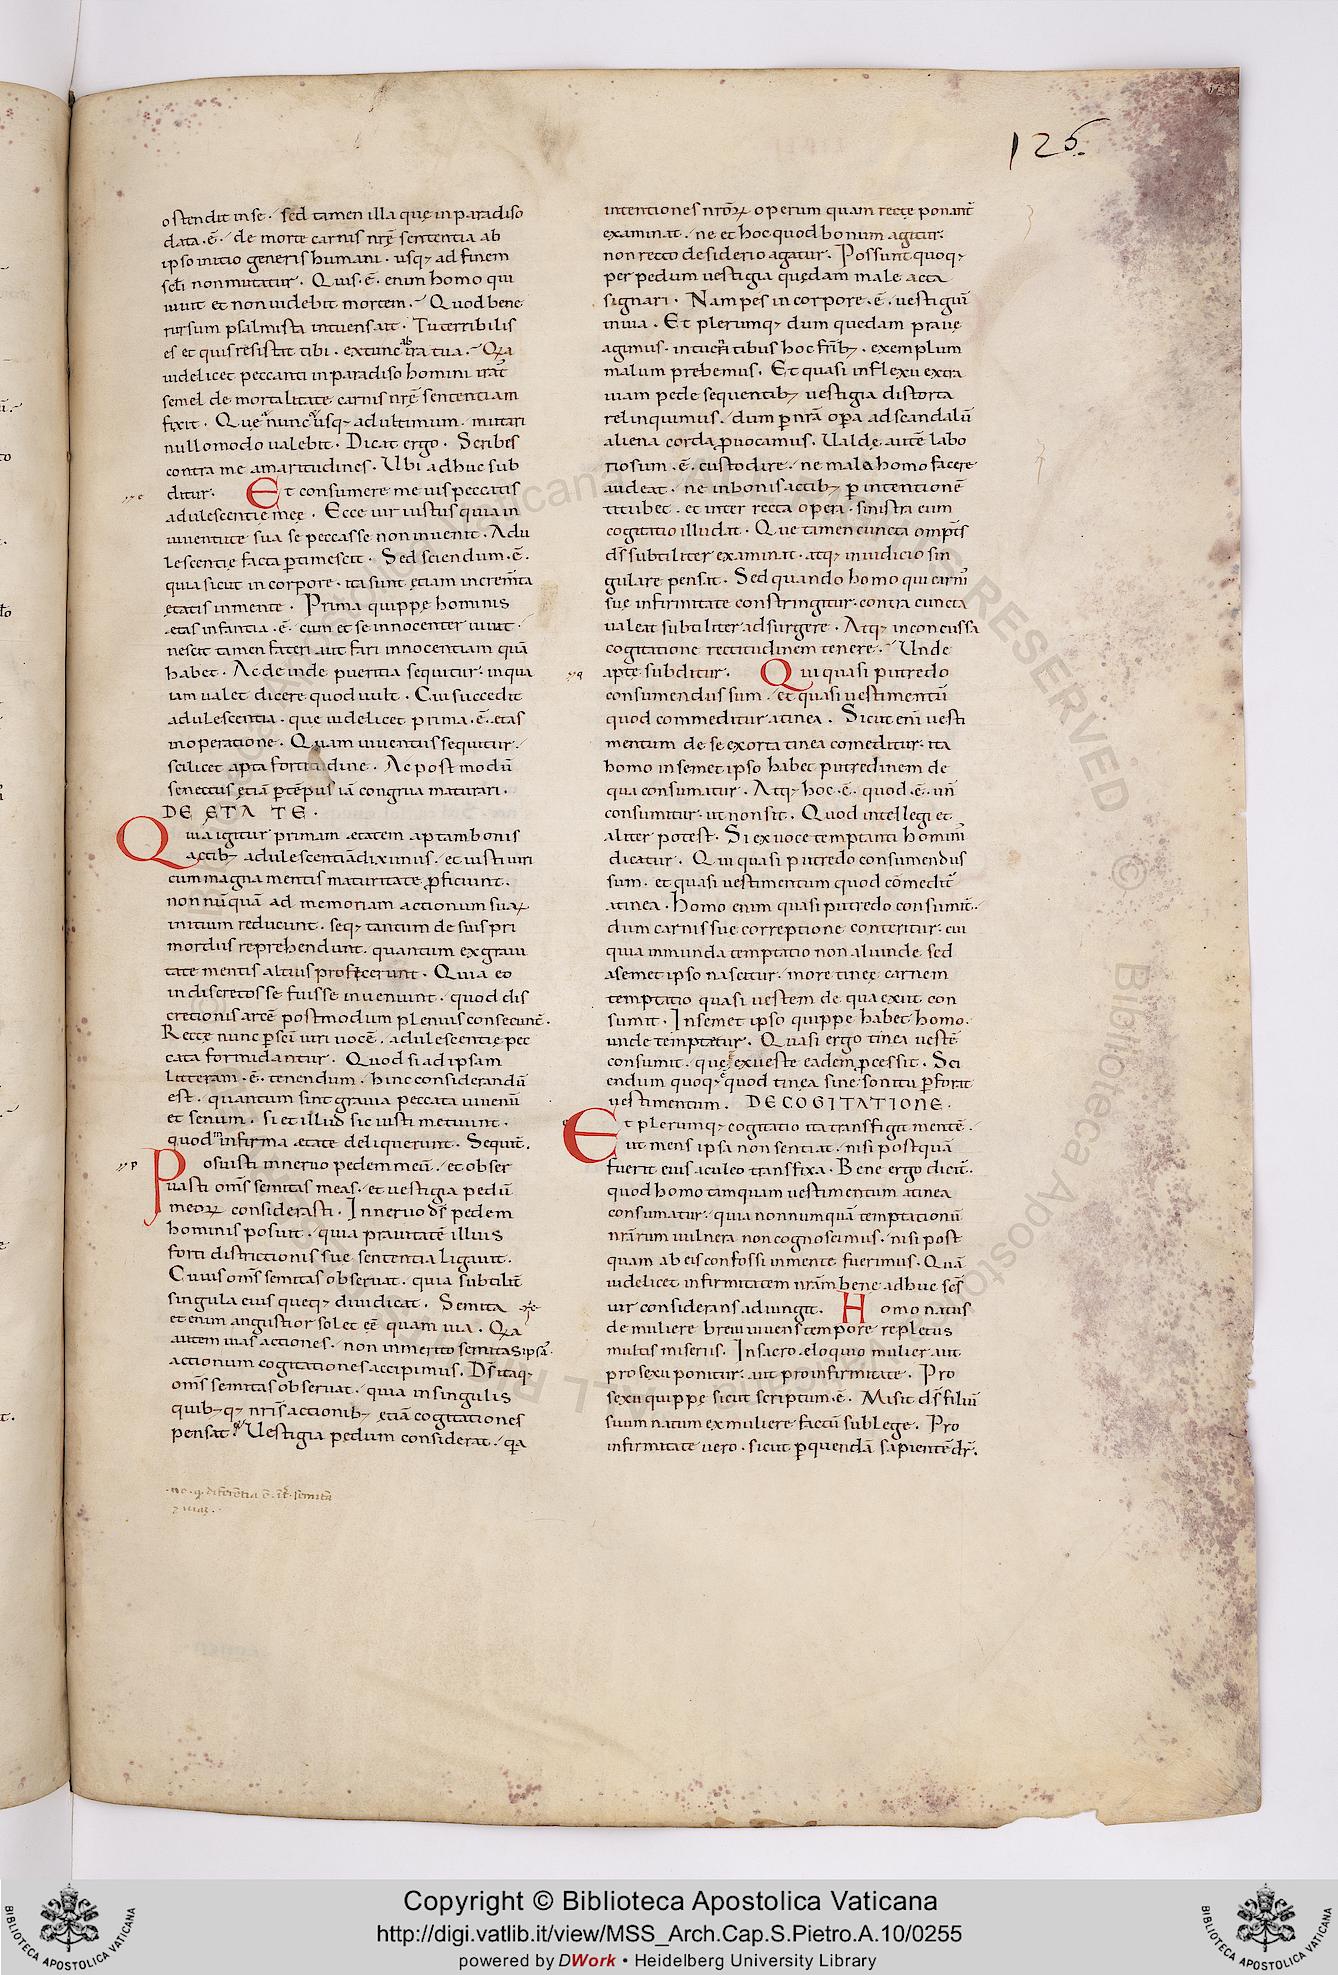 126.
ostendit in se · sed tamen illa quę in paradiso
data · ē · de morte carnis nrę̄ sententia ab
ipso initio generis humani · usq; ad finem
scłi non mutatur · Quis · ē · enim homo qui
uiuit et non uidebit mortem · Quod bene
rursum psalmista intuens ait · Tu terribilis
es et quis resistit tibi · ex tunc ab ira tua ·
uidelicet peccanti in paradiso homini
semel de mortalitate carnis nrę̄ sententiam
fixit · Quę nunc usq; ad ultimum · mutari
nullo modo ualebit · Dicat ergo · Scribes
contra me amaritudines · Ubi adhuc sub
ditur · Et consumere me uis peccatis
adulescentię męę · Ecce uir iustus quia in
iuuentute sua se peccasse non inuenit · Adu
lescentię facta ptimescit · Sed sciendum · ē ·
quia sicut in corpore · ita sunt ętiam increm̄ta
ętatis in mente · Prima quippę hominis
ętas infantia · ē · cum et se innocenter uiuit ·
nescit tamen fateri aut fari innocentiam quā
habet · Ac deinde pueritia sequitur · in qua
iam ualet dicere quod uult · Cui succedit
adulescentia · que uidelicet prima · ē · ętas
in operatione · Quam iuuentus sequitur ·
scilicet apta fortitudine · Ac post modū
senectus ętiā p tēpus iā congrua maturari ·
DE ĘTATE ·
Quia igitur primam ętatem aptam bonis
actib; adulescentiā diximus · et iusti uiri
cum magna mentis maturitate pficiunt ·
non nūquā ad memoriam actionum suaꝝ
initium reducunt · seq; tantum de suis pri
mordiis reprehendunt · quantum ex graui
tate mentis altius profecerunt · Quia eo
indiscretos se fuisse inueniunt · quod dis
cretionis arcē postmodum plenius consecunt̄ ·
Recte nunc p sci uiri uocē · adulescentię pec
cata formidantur · Quod si ad ipsam
litteram · ē · tenendum · hinc considerandū
est · quantum sint grauia peccata iuuenū
et senum · si et illud sic iusti metuunt ·
quod in infirma ętate deliquerunt · Sequit̄ ·
Posuisti in neruo pedem meū · et obser
uasti om̄s semitas meas · et uestigia pedū
meoꝝ considerasti · In neruo ds̄ pedem
hominis posuit · quia prauitatē illius
forti districtionis sue sententia ligauit ·
Cuius om̄s semitas obseruat · quia subtilit̄
singula eius queq; diiudicat · Semita
etenim angustior solet eē quam uia · Qīa
autem uias actiones · non inmerito semitas ipsaꝝ
actionum cogitationes accipimus · Ds̄ itaq;
om̄s semitas obseruat · quia in singulis
quib; q; nr̄is actionib; ętiā cogitationes
pensat · Uestigia pedum considerat · qīa
no · q · diferentia ē · int̄ · semitā
⁊ uiaꝫ ·
intentiones nr̄oꝝ operum quam recte ponant̄
examinat · ne et hoc quod bonum agitur ·
non recto desiderio agatur · Possunt quoq;
per pedum uestigia quędam male acta
signari · Nam pes in corpore · ē · uestigiū
in uia · Et plerumq; dum quedam praue
agimus · intuentibus hoc fr̄ib; · exemplum
malum prebemus · Et quasi inflexu extra
uiam pede sequentib; uestigia distorta
relinquimus · dum p nr̄a opa ad scandalū
aliena corda puocamus · Ualde autē labo
riosum · ē · custodire · ne mala homo facere
audeat · ne in bonis actib; p intentionē
titubet · et inter recta opera · sinistra eum
cogitatio illudat · Que tamen cuncta omps̄
ds̄ subtiliter examinat · atq; in iudicio sin
gula repensat · Sed quando homo qui carnī
suę infirmitate constringitur · contra cuncta
ualeat subtiliter adsurgere · Atq; inconcussa
cogitatione rectitudinem tenere · Unde
apte subditur · Qui quasi putredo
consumendus sum · et quasi uestimentū
quod commeditur a tinea · Sicut enī uesti
mentum de se exorta tinea comeditur · ita
homo in semet ipso habet putredinem de
qua consumatur · Atq; hoc · ē · quod · ē · un̄
consumitur · ut non sit · Quod intellegi et
aliter potest · Si ex uoce temptanti hominī
dicatur · Qui quasi putredo consumendus
sum · et quasi uestimentum quod cōmedit̄
a tinea · Homo enim quasi putredo consumit̄ ·
dum carnis sue correptione conteritur · cui
quia inmunda temptatio non aliunde sed
a semet ipso nascitur · more tineę carnem
temptatio quasi uestem de qua exiit con
sumit · In semet ipso quippe habet homo ·
unde temptetur · Quasi ergo tinea uestē
consumit · quę ex ueste eadem pcessit · Sci
endum quoq; quod tinea sine sonitu pforat
uestimentum · DE COGITATIONE ·
Et plerumq; cogitatio ita transfigit mentē ·
ut mens ipsa non sentiat · nisi postquā
fuerit eius aculeo transfixa · Bene ergo dicit̄ ·
quod homo tamquam uestimentum a tinea
consumatur · quia nonnumquā temptationū
nr̄arum uulnera non cognoscimus · nisi post
quam ab eis confossi in mente fuerimus · Quā
uidelicet infirmitatem nr̄am bene adhuc scs̄
uir considerans adiungit · Homo natus
de muliere breui uiuens tempore repletus
multis miseriis · In sacro eloquio mulier aut
pro sexu ponitur · aut pro infirmitate · Pro
sexu quippe sicut scriptum · ē · Misit ds̄ filiū
suum natum ex muliere factū sub lege · Pro
infirmitate uero · sicut p quendā sapientē dr̄ ·
Copyright © Biblioteca Apostolica Vaticana
http://digi.vatlib.it/view/MSS_Arch.Cap.S.Pietro.A.10/0255
powered by DWork • Heidelberg University Library